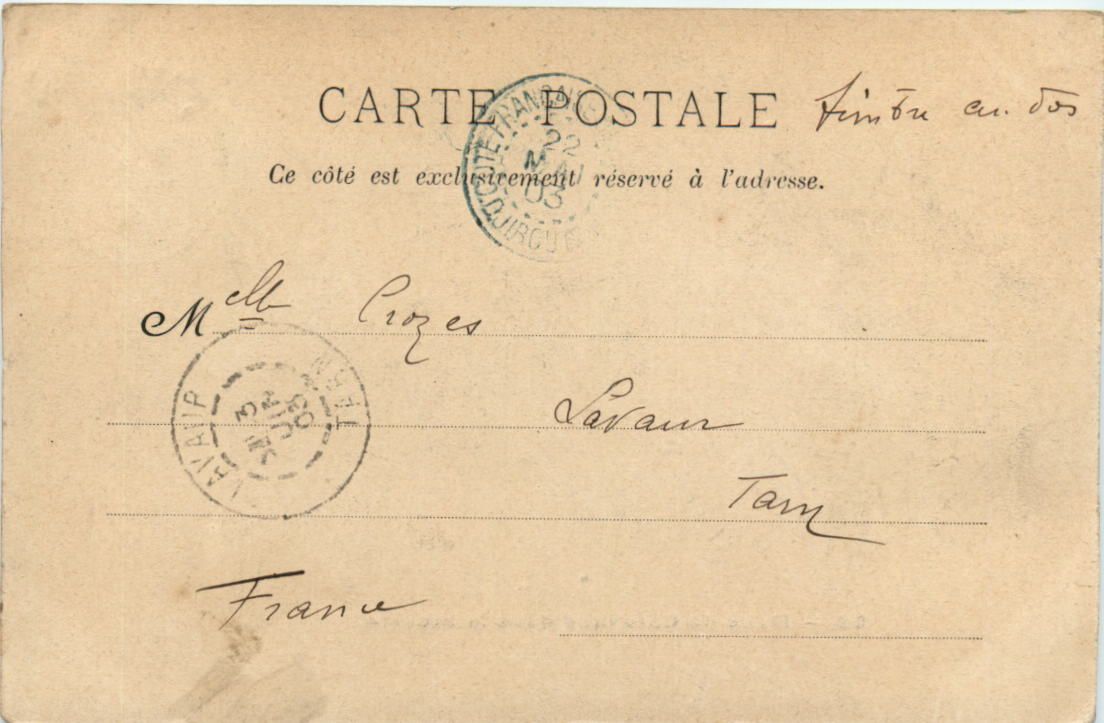 CARTE POSTALE timbre au dos
Ce côté est exclusivement réservé à l'adresse.
CÔTE FRANÇAISE
22
MAI
03
DJIBOUTI
Melle Crozes
LAVAUR
TARN
JUIN
03
Lavaur
Tarn
France